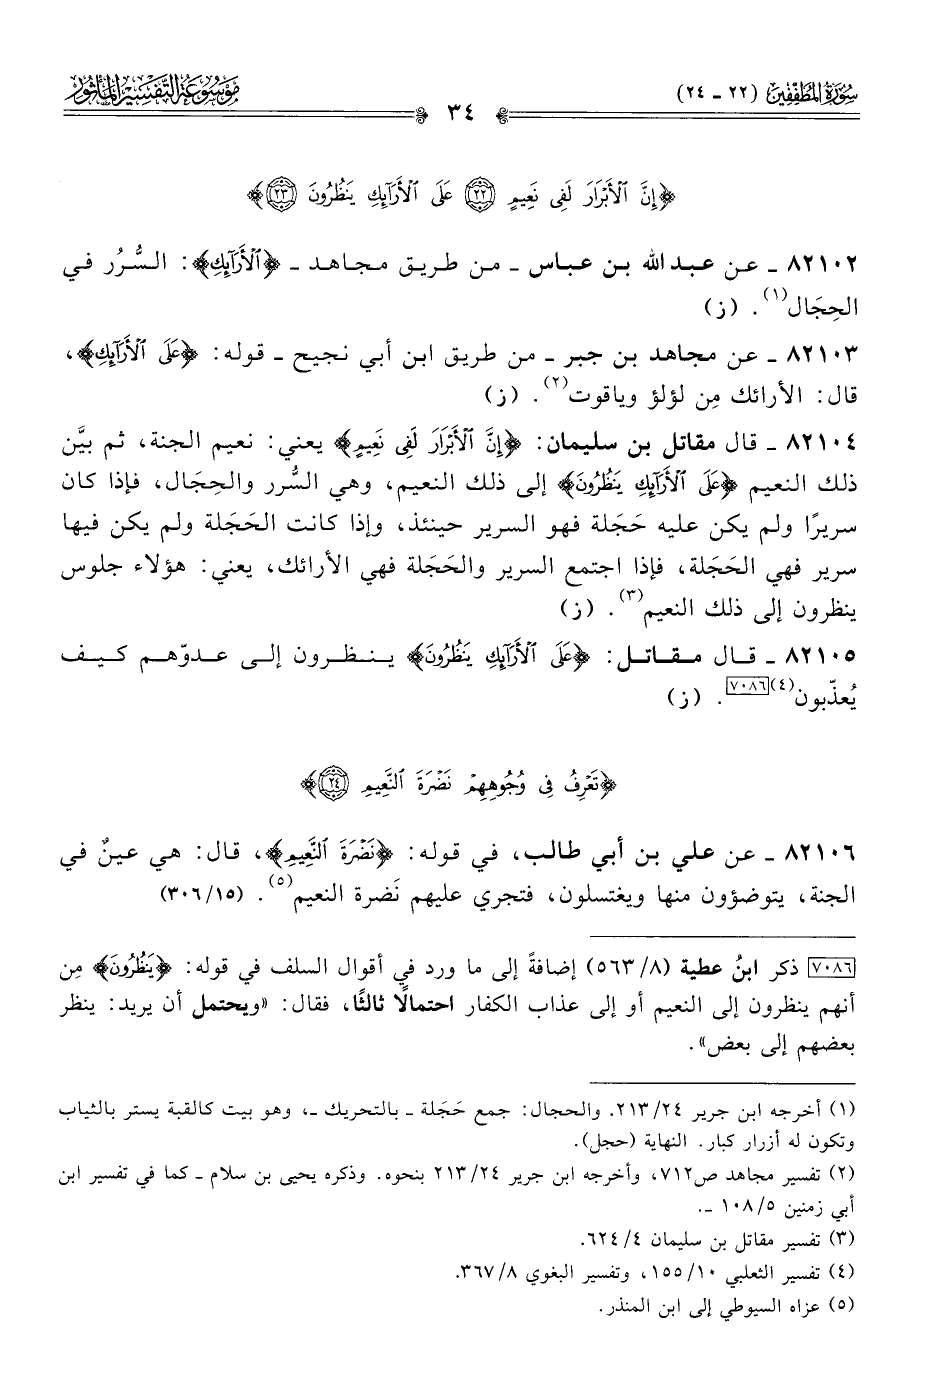 سُورَةُ المُطَفِّفِين (٢٢ - ٢٤)
٣٤
مَوْسُوعَةُ التَّفْسِيرِ المَأْثُور
﴿إِنَّ ٱلْأَبْرَارَ لَفِى نَعِيمٍ ٢٢ عَلَى ٱلْأَرَآئِكِ يَنظُرُونَ ٢٣﴾
٨٢١٠٢ ـ عن عبد الله بن عباس ـ من طريق مجاهد ـ ﴿ٱلْأَرَآئِكِ﴾: السُّرُر في
الحِجَال(١). (ز)
٨٢١٠٣ ـ عن مجاهد بن جبر ـ من طريق ابن أبي نجيح ـ قوله: ﴿عَلَى ٱلْأَرَآئِكِ﴾،
قال: الأرائك مِن لؤلؤ وياقوت(٢). (ز)
٨٢١٠٤ ـ قال مقاتل بن سليمان: ﴿إِنَّ ٱلْأَبْرَارَ لَفِى نَعِيمٍ﴾ يعني: نعيم الجنة، ثم بيَّن
ذلك النعيم ﴿عَلَى ٱلْأَرَآئِكِ يَنظُرُونَ﴾ إلى ذلك النعيم، وهي السُّرر والحِجَال، فإذا كان
سريرًا ولم يكن عليه حَجَلة فهو السرير حينئذ، وإذا كانت الحَجَلة ولم يكن فيها
سرير فهي الحَجَلة، فإذا اجتمع السرير والحَجَلة فهي الأرائك، يعني: هؤلاء جلوس
ينظرون إلى ذلك النعيم(٣). (ز)
٨٢١٠٥ ـ قال مقاتل: ﴿عَلَى ٱلْأَرَآئِكِ يَنظُرُونَ﴾ ينظرون إلى عدوّهم كيف
يُعذّبون(٤)٧٠٨٦. (ز)
﴿تَعْرِفُ فِى وُجُوهِهِمْ نَضْرَةَ ٱلنَّعِيمِ ٢٤﴾
٨٢١٠٦ ـ عن علي بن أبي طالب، في قوله: ﴿نَضْرَةَ ٱلنَّعِيمِ﴾، قال: هي عينٌ في
الجنة، يتوضؤون منها ويغتسلون، فتجري عليهم نَضرة النعيم(٥). (٣٠٦/١٥)
٧٠٨٦ ذكر ابنُ عطية (٥٦٣/٨) إضافةً إلى ما ورد في أقوال السلف في قوله: ﴿يَنظُرُونَ﴾ مِن
أنهم ينظرون إلى النعيم أو إلى عذاب الكفار احتمالًا ثالثًا، فقال: «ويحتمل أن يريد: ينظر
بعضهم إلى بعض».
(١) أخرجه ابن جرير ٢١٣/٢٤. والحجال: جمع حَجَلة ـ بالتحريك ـ، وهو بيت كالقبة يستر بالثياب
وتكون له أزرار كبار. النهاية (حجل).
(٢) تفسير مجاهد ص٧١٢، وأخرجه ابن جرير ٢١٣/٢٤ بنحوه. وذكره يحيى بن سلام ـ كما في تفسير ابن
أبي زمنين ١٠٨/٥ ـ.
(٣) تفسير مقاتل بن سليمان ٦٢٤/٤.
(٤) تفسير الثعلبي ١٥٥/١٠، وتفسير البغوي ٣٦٧/٨.
(٥) عزاه السيوطي إلى ابن المنذر.